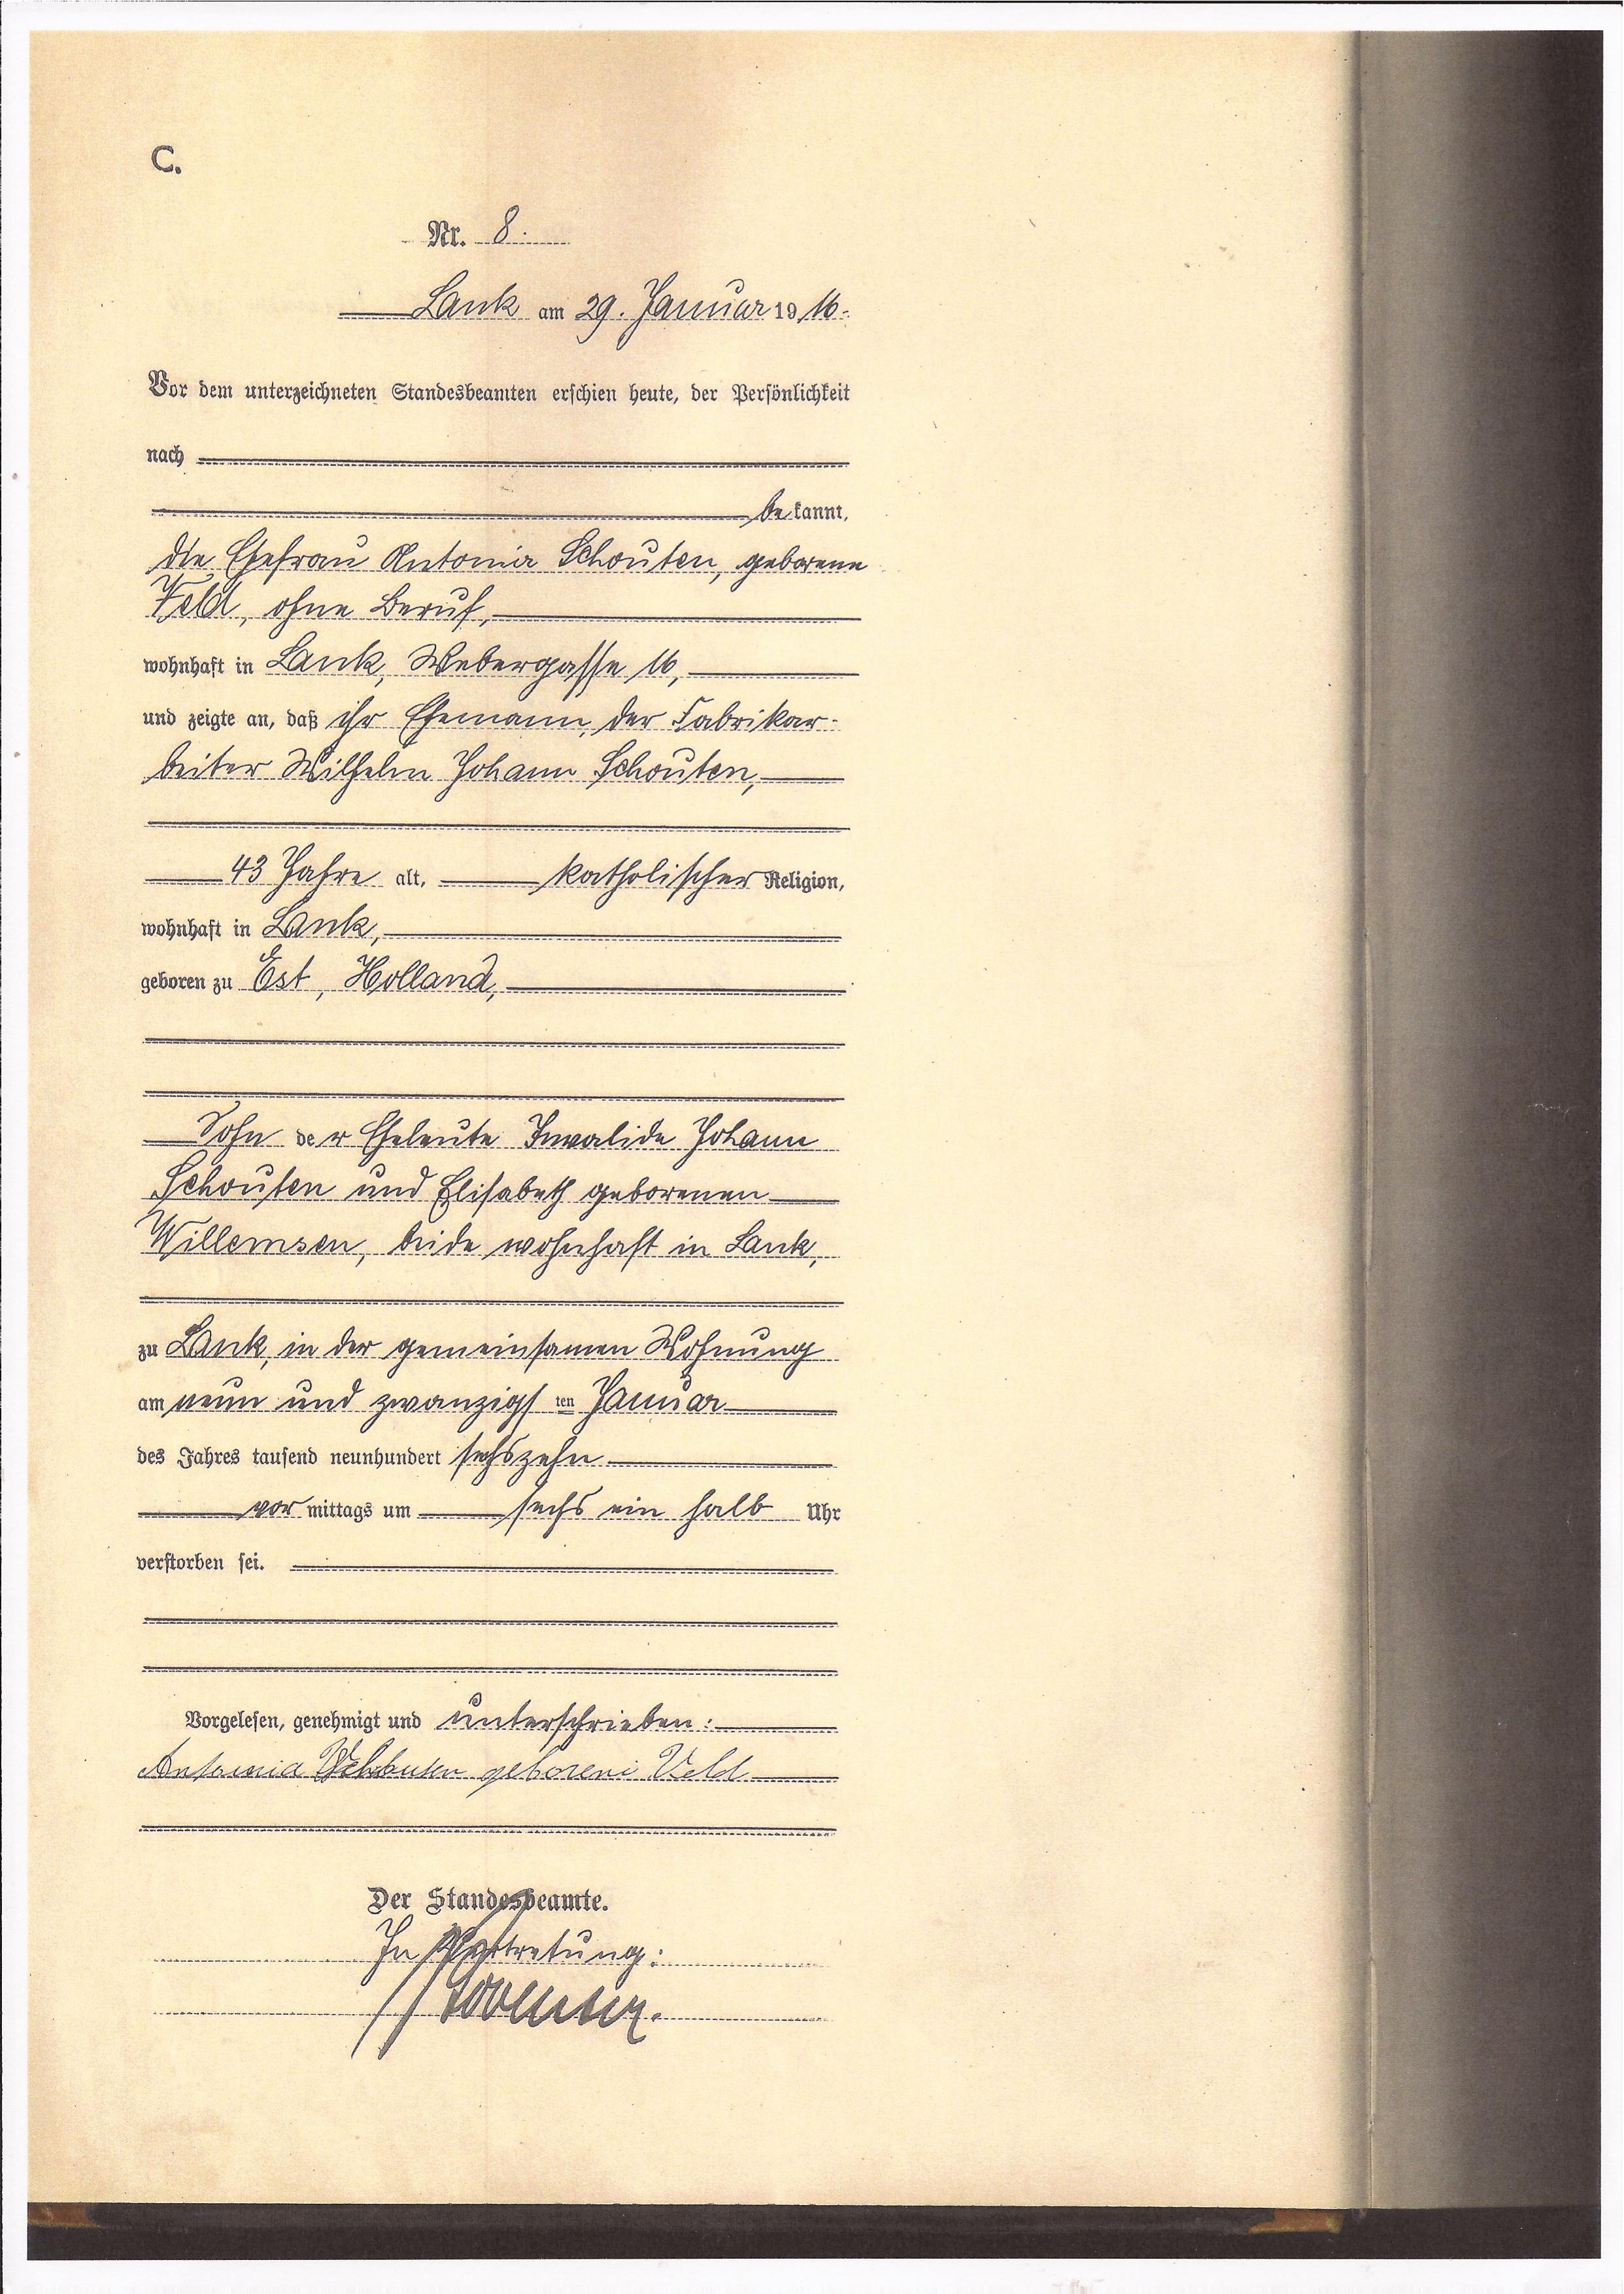 C.
Nr. 8.
Lank am 29. Januar 1916.
Vor dem unterzeichneten Standesbeamten erschien heute, der Persönlichkeit
nach
bekannt,
die Ehefrau Antonia Schouten, geborene
Feld, ohne Beruf,
wohnhaft in Lank, Webergasse 16,
und zeigte an, daß ihr Ehemann, der Fabrikar-
beiter Wilhelm Johann Schouten,
43 Jahre alt, katholischer Religion,
wohnhaft in Lank,
geboren zu Est, Holland,
Sohn der Eheleute Invalide Johann
Schouten und Elisabeth geborenen
Willemsen, beide wohnhaft in Lank,
zu Lank, in der gemeinsamen Wohnung
am neun und zwanzigsten Januar
des Jahres tausend neunhundert sechszehn
vormittags um sechs ein halb Uhr
verstorben sei.
Vorgelesen, genehmigt und unterschrieben:
Antonia Schouten geborene Veld
Der Standesbeamte.
In Vertretung: